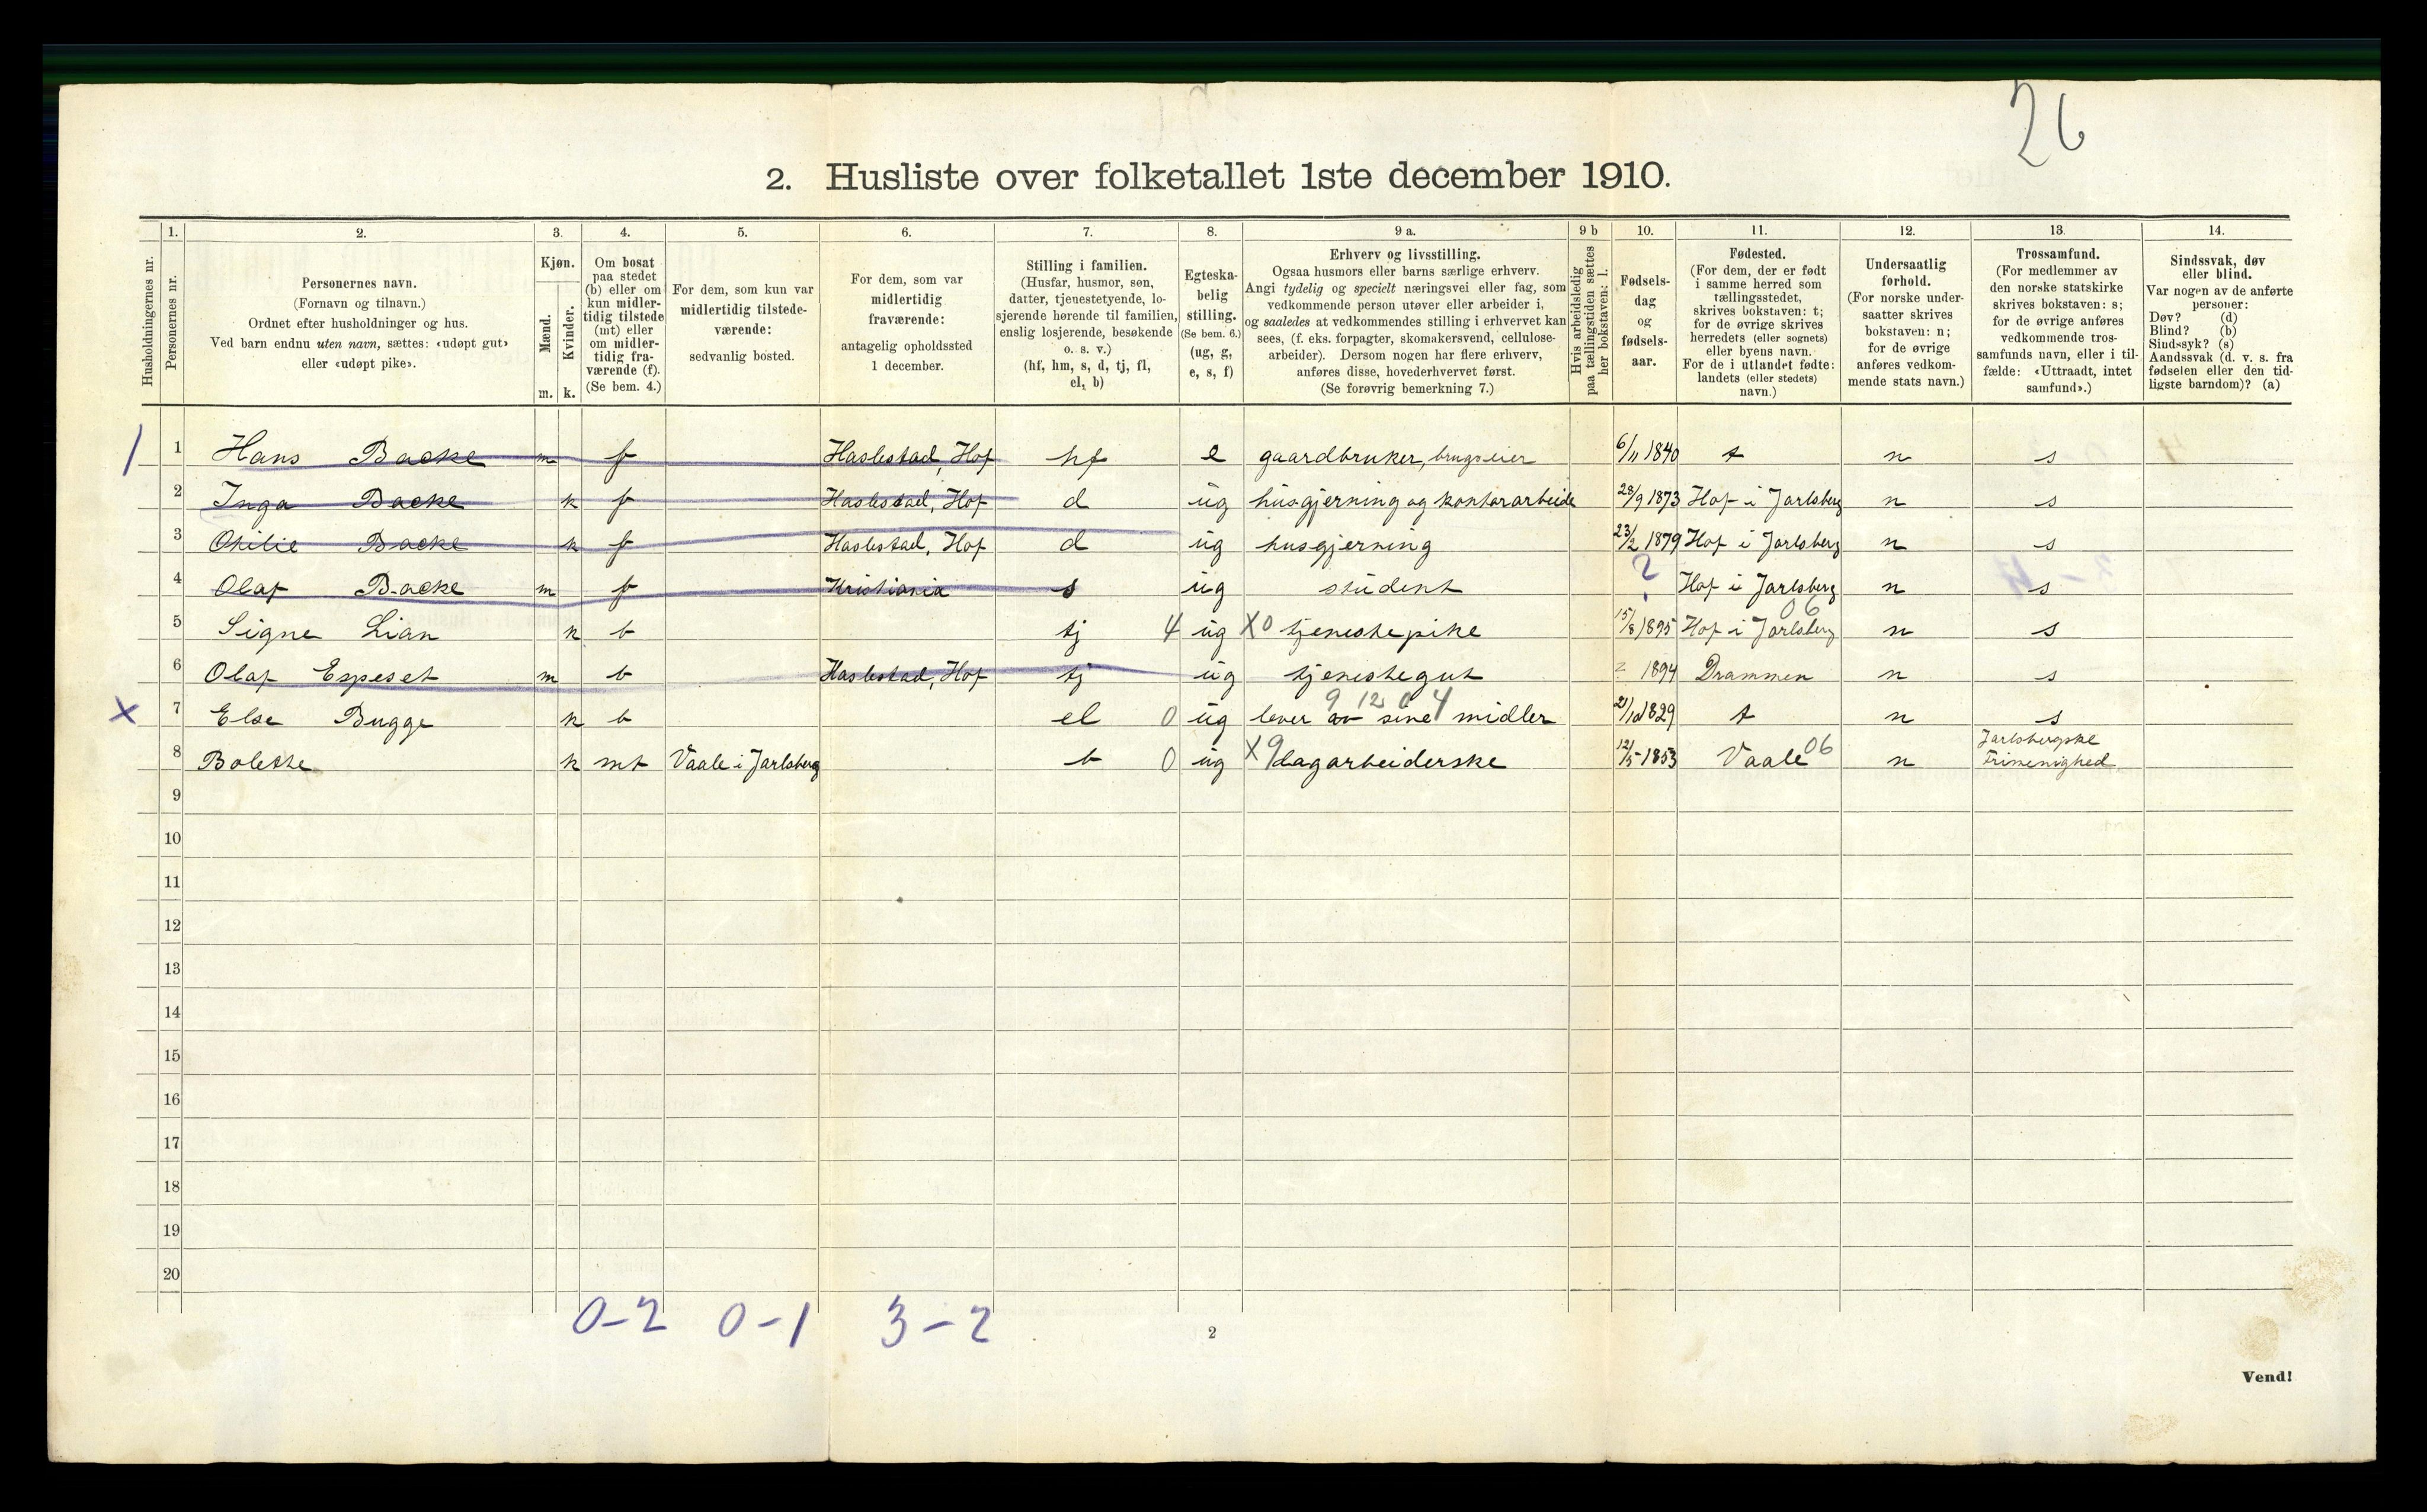 26
2. Husliste over folketallet 1ste december 1910.
Husholdningernes nr.
1.
Personernes nr.
2.
Personernes navn.
(Fornavn og tilnavn.)
Ordnet efter husholdninger og hus.
Ved barn endnu uten navn, sættes: «udøpt gut»
eller «udøpt pike».
3.
Kjøn.
Mænd.
Kvinder.
m. k.
4.
Om bosat
paa stedet
(b) eller om
kun midler-
tidig tilstede
(mt) eller
om midler-
tidig fra-
værende (f).
(Se bem. 4.)
5.
For dem, som kun var
midlertidig tilstede-
værende:
sedvanlig bosted.
6.
For dem, som var
midlertidig
fraværende:
antagelig opholdssted
1 december.
7.
Stilling i familien.
(Husfar, husmor, søn,
datter, tjenestetyende, lo-
sjerende hørende til familien,
enslig losjerende, besøkende
o. s. v.)
(hf, hm, s, d, tj, fl,
el, b)
8.
Egteska-
belig
stilling.
(Se bem. 6.)
(ug, g,
e, s, f)
9 a.
Erhverv og livsstilling.
Ogsaa husmors eller barns særlige erhverv.
Angi tydelig og specielt næringsvei eller fag, som
vedkommende person utøver eller arbeider i,
og saaledes at vedkommendes stilling i erhvervet kan
sees, (f. eks. forpagter, skomakersvend, cellulose-
arbeider). Dersom nogen har flere erhverv,
anføres disse, hovederhvervet først.
(Se forøvrig bemerkning 7.)
9 b
Hvis arbeidsledig
paa tællingstiden sættes
her bokstaven: l.
10.
Fødsels-
dag
og
fødsels-
aar.
11.
Fødested.
(For dem, der er født
i samme herred som
tællingsstedet,
skrives bokstaven: t;
for de øvrige skrives
herredets (eller sognets)
eller byens navn.
For de i utlandet fødte:
landets (eller stedets)
navn.)
12.
Undersaatlig
forhold.
(For norske under-
saatter skrives
bokstaven: n;
for de øvrige
anføres vedkom-
mende stats navn.)
13.
Trossamfund.
(For medlemmer av
den norske statskirke
skrives bokstaven: s;
for de øvrige anføres
vedkommende tros-
samfunds navn, eller i til-
fælde: «Uttraadt, intet
samfund».)
14.
Sindssvak, døv
eller blind.
Var nogen av de anførte
personer:
Døv? (d)
Blind? (b)
Sindssyk? (s)
Aandssvak (d. v. s. fra
fødselen eller den tid-
ligste barndom)? (a)
1 1 Hans Backe m f Haslestad, Hof hf e gaardbruker, brugseier 6/11 1840 t n s
2 Inga Backe k f Haslestad, Hof d ug husgjerning og kontorarbeide 28/9 1873 Hof i Jarlsberg n s
3 Othilie Backe k f Haslestad, Hof d ug husgjerning 23/2 1879 Hof i Jarlsberg n s
4 Olaf Backe m f Kristiania s ug student ? Hof i Jarlsberg n s
5 Signe Lian k b tj 4 ug X0 tjenestepike 15/8 1895 Hof i Jarlsberg 06 n s
6 Olaf Espeset m b Haslestad, Hof tj ug tjenestegut ? 1894 Drammen n s
X 7 Else Bugge k b el 0 ug lever av sine midler 1829 t n s
8 Bolette k mt Vaale i Jarlsberg b 0 ug X9 dagarbeiderske 12/5 1853 Vaale 06 n Jarlsbergske Frimenighed
9
10
11
12
13
14
15
16
17
18
19
20
0-2 0-1 3-2
2
Vend!